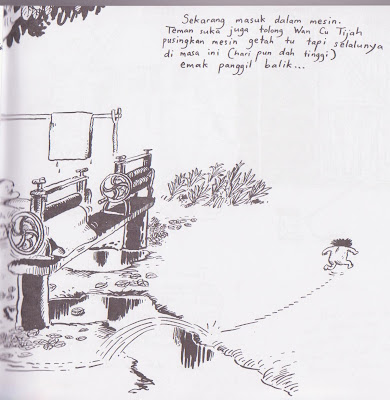 Sekarang masuk dalam mesin.
Teman suka juga tolong Wan Cu Tijah
pusingkan mesin getah tu tapi selalunya
di masa ini (hari pun dah tinggi)
emak panggil balik...